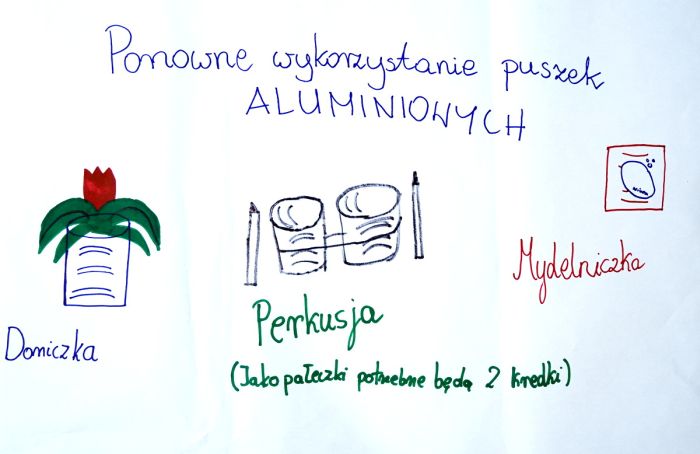 Ponowne wykorzystanie puszek
ALUMINIOWYCH
Doniczka
Perkusja
(Jako pałeczki potrzebne będą 2 kredki)
Mydelniczka